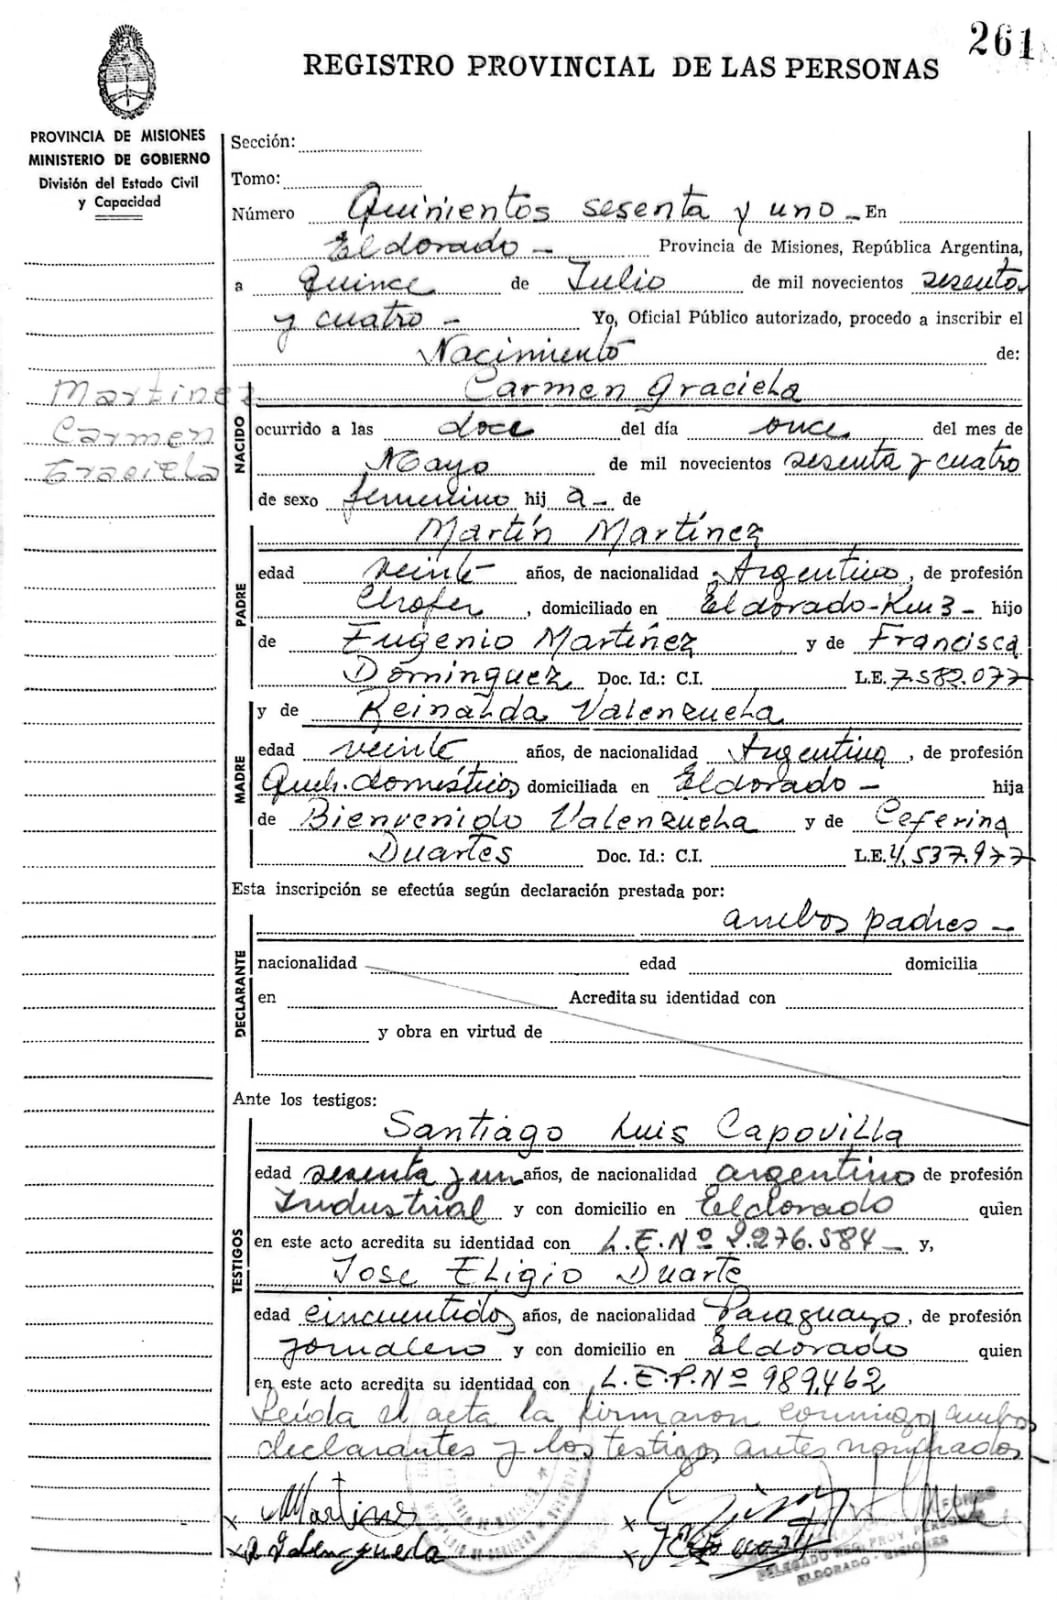 261
REGISTRO PROVINCIAL DE LAS PERSONAS
PROVINCIA DE MISIONES
MINISTERIO DE GOBIERNO
División del Estado Civil
y Capacidad
Sección:
Tomo:
Número Quinientos sesenta y uno - En
Eldorado - Provincia de Misiones, República Argentina,
a Quince de Julio de mil novecientos sesenta
y cuatro - Yo, Oficial Público autorizado, procedo a inscribir el
Nacimiento de:
Martinez
Carmen
Graciela
NACIDO
Carmen Graciela
ocurrido a las doce del día once del mes de
Mayo de mil novecientos sesenta y cuatro
de sexo femenino hij a - de
PADRE
Martín Martínez
edad veinte años, de nacionalidad Argentino, de profesión
Chofer, domiciliado en Eldorado-Km 3 - hijo
de Eugenio Martínez y de Francisca
Domínguez Doc. Id.: C.I. L.E. 7.582.077
MADRE
y de Reinalda Valenzuela
edad veinte años, de nacionalidad Argentina, de profesión
Queh. domésticos domiciliada en Eldorado - hija
de Bienvenido Valenzuela y de Ceferina
Duartes Doc. Id.: C.I. L.E. 4.537.977
Esta inscripción se efectúa según declaración prestada por:
DECLARANTE
ambos padres -
nacionalidad edad domicilia
en Acredita su identidad con
y obra en virtud de
Ante los testigos:
TESTIGOS
Santiago Luis Capovilla
edad sesenta y un años, de nacionalidad argentino de profesión
Industrial y con domicilio en Eldorado quien
en este acto acredita su identidad con L.E. Nº 2.276.584 - y,
Jose Eligio Duarte
edad cincuentidos años, de nacionalidad Paraguayo, de profesión
jornalero y con domicilio en Eldorado quien
en este acto acredita su identidad con L.E.P. Nº 989.462
Leída el acta la firmaron conmigo ambos
declarantes y los testigos antes nombrados
x Martinez x
x R Valenzuela x
DELEGADO REG. PROV. PERSONAS
ELDORADO - MISIONES